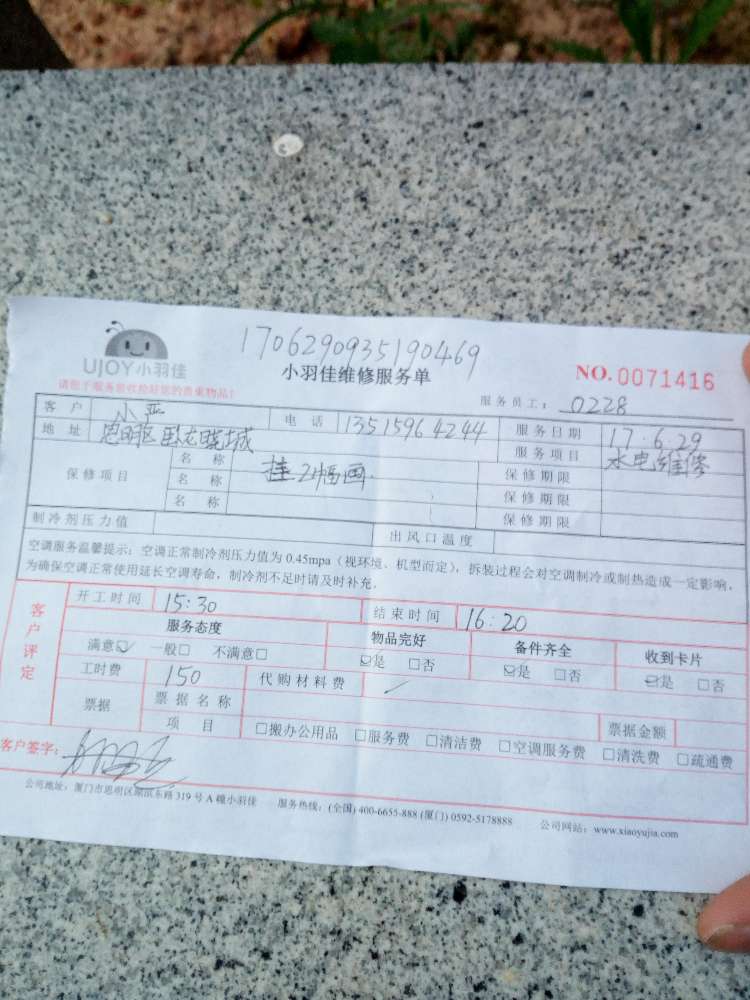 1706290935190469
UJOY小羽佳
小羽佳维修服务单
NO.0071416
请您于服务前收捡好您的贵重物品！
服务员工： 0228
客户 小严 电话 13515964244 服务日期 17.6.29
地址 思明区卧龙晓城 服务项目 水电维修
保修项目 名称 挂2幅画 保修期限
名称 保修期限
名称 保修期限
制冷剂压力值 出风口温度
空调服务温馨提示：空调正常制冷剂压力值为 0.45mpa（视环境、机型而定），拆装过程会对空调制冷或制热造成一定影响，
为确保空调正常使用延长空调寿命，制冷剂不足时请及时补充。
客户评定
开工时间 15:30 结束时间 16:20
服务态度 物品完好 备件齐全 收到卡片
满意☑ 一般□ 不满意□ ☑是 □否 ☑是 □否 ☑是 □否
工时费 150 代购材料费
票据 票据名称 票据金额
项目 □搬办公用品 □服务费 □清洁费 □空调服务费 □清洗费 □疏通费
客户签字：
公司地址：厦门市思明区湖滨东路 319 号 A 幢小羽佳 服务热线：(全国) 400-6655-888 (厦门) 0592-5178888 公司网站：www.xiaoyujia.com